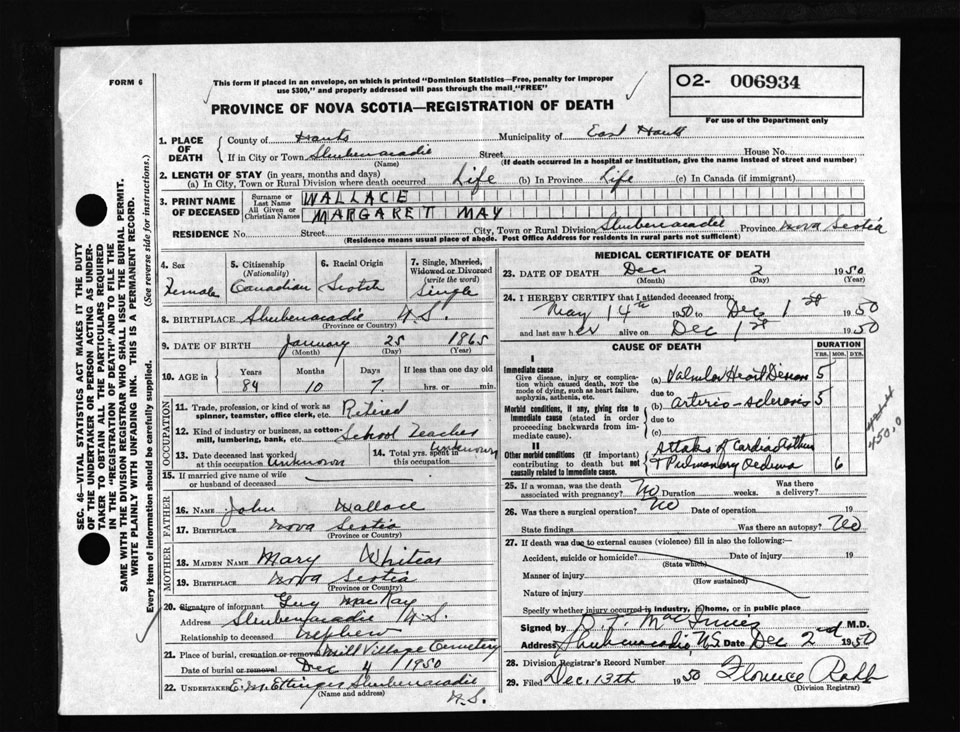 FORM 6
This form if placed in an envelope, on which is printed "Dominion Statistics—Free, penalty for improper
use $300," and properly addressed will pass through the mail "FREE"
O2- 006934
For use of the Department only
PROVINCE OF NOVA SCOTIA—REGISTRATION OF DEATH
1. PLACE OF DEATH County of Hants Municipality of East Hants
If in City or Town Shubenacadie Street House No.
(Name) (If death occurred in a hospital or institution, give the name instead of street and number)
2. LENGTH OF STAY (in years, months and days)
(a) In City, Town or Rural Division where death occurred Life (b) In Province Life (c) In Canada (if immigrant)
3. PRINT NAME OF DECEASED Surname or Last Name WALLACE
All Given or Christian Names MARGARET MAY
RESIDENCE No. Street City, Town or Rural Division Shubenacadie Province Nova Scotia
(Residence means usual place of abode. Post Office Address for residents in rural parts not sufficient)
4. Sex Female
5. Citizenship (Nationality) Canadian
6. Racial Origin Scotch
7. Single, Married, Widowed or Divorced (write the word) Single
8. BIRTHPLACE Shubenacadie N.S.
(Province or Country)
9. DATE OF BIRTH January 25 1865
(Month) (Day) (Year)
10. AGE in Years Months Days If less than one day old
84 10 7 hrs. or min.
OCCUPATION
11. Trade, profession, or kind of work as spinner, teamster, office clerk, etc. Retired
12. Kind of industry or business, as cotton-mill, lumbering, bank, etc. School Teacher
13. Date deceased last worked at this occupation Unknown
14. Total yrs. spent in this occupation Unknown
15. If married give name of wife or husband of deceased
FATHER
16. Name John Wallace
17. Birthplace Nova Scotia
(Province or Country)
MOTHER
18. MAIDEN NAME Mary
19. BIRTHPLACE Nova Scotia
(Province or Country)
20. Signature of informant Guy MacKay
Address Shubenacadie N.S.
Relationship to deceased nephew
21. Place of burial, cremation or removal Mill Village Cemetery
Date of burial or removal Dec 4 / 1950
22. UNDERTAKER E. M. Ettinger Shubenacadie
(Name and address) N.S.
MEDICAL CERTIFICATE OF DEATH
23. DATE OF DEATH Dec 2 1950
(Month) (Day) (Year)
24. I HEREBY CERTIFY that I attended deceased from:
May 14th 1950 to Dec 1st 1950
and last saw her alive on Dec 1st 1950
CAUSE OF DEATH DURATION
YRS. MOS. DYS.
I
Immediate cause
Give disease, injury or complication which caused death, NOT the mode of dying, such as heart failure, asphyxia, asthenia, etc.
(a) Valvular Heart Disease 5
due to
Morbid conditions, if any, giving rise to immediate cause (stated in order proceeding backwards from immediate cause).
(b) arterio-sclerosis 5
due to
(c)
II
Other morbid conditions (if important) contributing to death but not causally related to immediate cause.
Attaks of Cardiac Asthma
+ Pulmonary Oedema 6
450.0
25. If a woman, was the death associated with pregnancy? No Duration weeks. Was there a delivery?
26. Was there a surgical operation? No Date of operation 19
State findings Was there an autopsy? No
27. If death was due to external causes (violence) fill in also the following:—
Accident, suicide or homicide? Date of injury 19
(State which)
Manner of injury
(How sustained)
Nature of injury
Specify whether injury occurred in industry, home, or in public place
Signed by D. F. MacInnis M.D.
Address Shubenacadie, N.S. Date Dec 2nd 1950
28. Division Registrar's Record Number
29. Filed Dec. 13th 1950 Florence
(Division Registrar)
SEC. 46—VITAL STATISTICS ACT MAKES IT THE DUTY
OF THE UNDERTAKER OR PERSON ACTING AS UNDER-
TAKER TO OBTAIN ALL THE PARTICULARS REQUIRED
IN THE "REGISTRATION OF DEATH" AND TO FILE THE
SAME WITH THE DIVISION REGISTRAR WHO SHALL ISSUE THE BURIAL PERMIT.
WRITE PLAINLY WITH UNFADING INK. THIS IS A PERMANENT RECORD.
Every item of information should be carefully supplied. (See reverse side for instructions.)